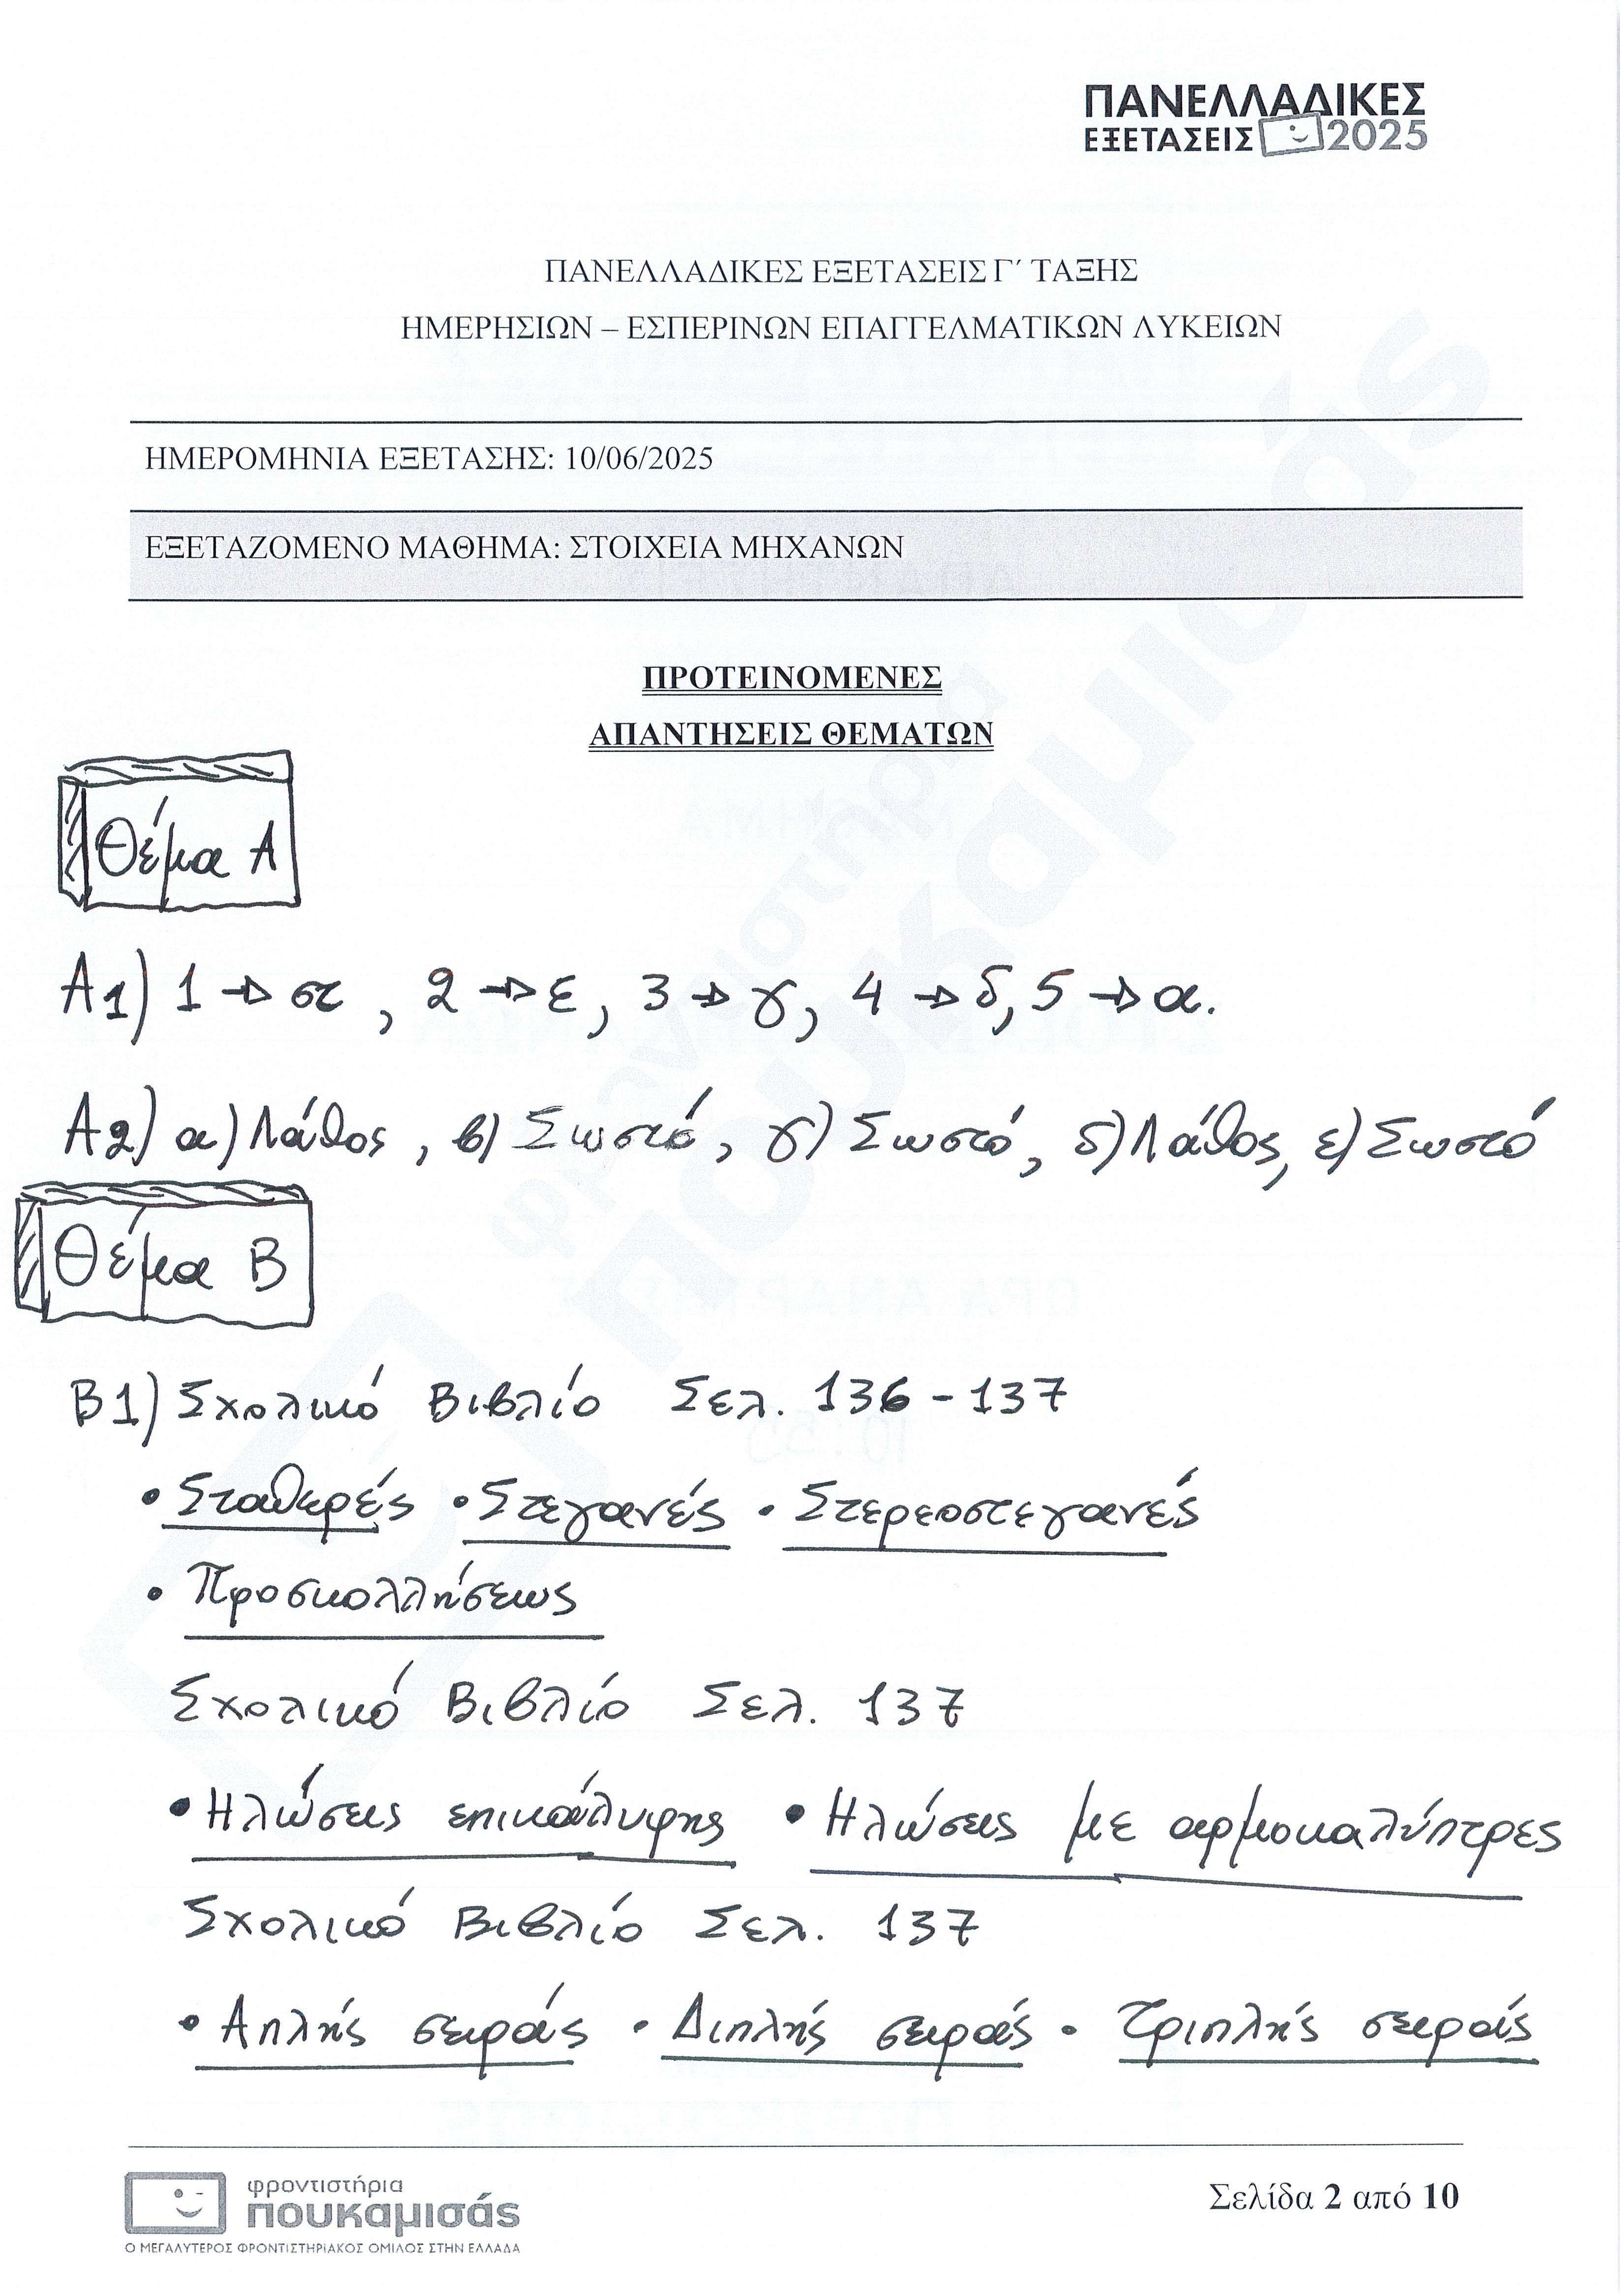 ΠΑΝΕΛΛΑΔΙΚΕΣ
ΕΞΕΤΑΣΕΙΣ 2025
ΠΑΝΕΛΛΑΔΙΚΕΣ ΕΞΕΤΑΣΕΙΣ Γ΄ ΤΑΞΗΣ
ΗΜΕΡΗΣΙΩΝ – ΕΣΠΕΡΙΝΩΝ ΕΠΑΓΓΕΛΜΑΤΙΚΩΝ ΛΥΚΕΙΩΝ
ΗΜΕΡΟΜΗΝΙΑ ΕΞΕΤΑΣΗΣ: 10/06/2025
ΕΞΕΤΑΖΟΜΕΝΟ ΜΑΘΗΜΑ: ΣΤΟΙΧΕΙΑ ΜΗΧΑΝΩΝ
ΠΡΟΤΕΙΝΟΜΕΝΕΣ
ΑΠΑΝΤΗΣΕΙΣ ΘΕΜΑΤΩΝ
Θέμα Α
Α1) 1 → στ , 2 → ε, 3 → γ, 4 → δ, 5 → α.
Α2) α) Λάθος , β) Σωστό , γ) Σωστό, δ) Λάθος, ε) Σωστό
Θέμα Β
Β1) Σχολικό Βιβλίο Σελ. 136 - 137
• Σταθερές • Στεγανές • Στερεοστεγανές
• Προσκολλήσεως
Σχολικό Βιβλίο Σελ. 137
• Ηλώσεις επικάλυψης • Ηλώσεις με αρμοκαλύπτρες
Σχολικό Βιβλίο Σελ. 137
• Απλής σειράς • Διπλής σειράς • Τριπλής σειράς
φροντιστήρια
πουκαμισάς
Ο ΜΕΓΑΛΥΤΕΡΟΣ ΦΡΟΝΤΙΣΤΗΡΙΑΚΟΣ ΟΜΙΛΟΣ ΣΤΗΝ ΕΛΛΑΔΑ
Σελίδα 2 από 10